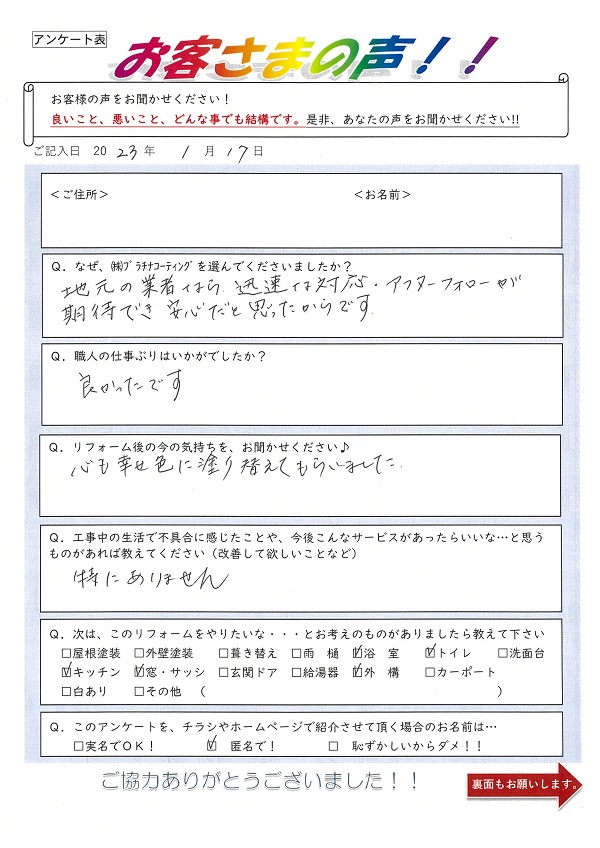 アンケート表
お客さまの声！！
お客様の声をお聞かせください！
良いこと、悪いこと、どんな事でも結構です。是非、あなたの声をお聞かせください!!
ご記入日 2023年 1月17日
＜ご住所＞ ＜お名前＞
Q．なぜ、㈱ﾌﾟﾗﾁﾅｺｰﾃｨﾝｸﾞを選んでくださいましたか？
地元の業者なら 迅速な対応・アフターフォローが
期待でき 安心だと思ったからです。
Q．職人の仕事ぶりはいかがでしたか？
良かったです
Q．リフォーム後の今の気持ちを、お聞かせください♪
心も幸せ色に塗り替えてもらいました。
Q．工事中の生活で不具合に感じたことや、今後こんなサービスがあったらいいな…と思う
ものがあれば教えてください（改善して欲しいことなど）
特にありません
Q．次は、このリフォームをやりたいな・・・とお考えのものがありましたら教えて下さい
□屋根塗装 □外壁塗装 □葺き替え □雨 樋 ☑浴 室 ☑トイレ □洗面台
☑キッチン ☑窓・サッシ □玄関ドア □給湯器 ☑外 構 □カーポート
□白あり □その他 （ ）
Q．このアンケートを、チラシやホームページで紹介させて頂く場合のお名前は…
□実名でOK！ ☑ 匿名で！ □ 恥ずかしいからダメ！！
ご協力ありがとうございました！！
裏面もお願いします。